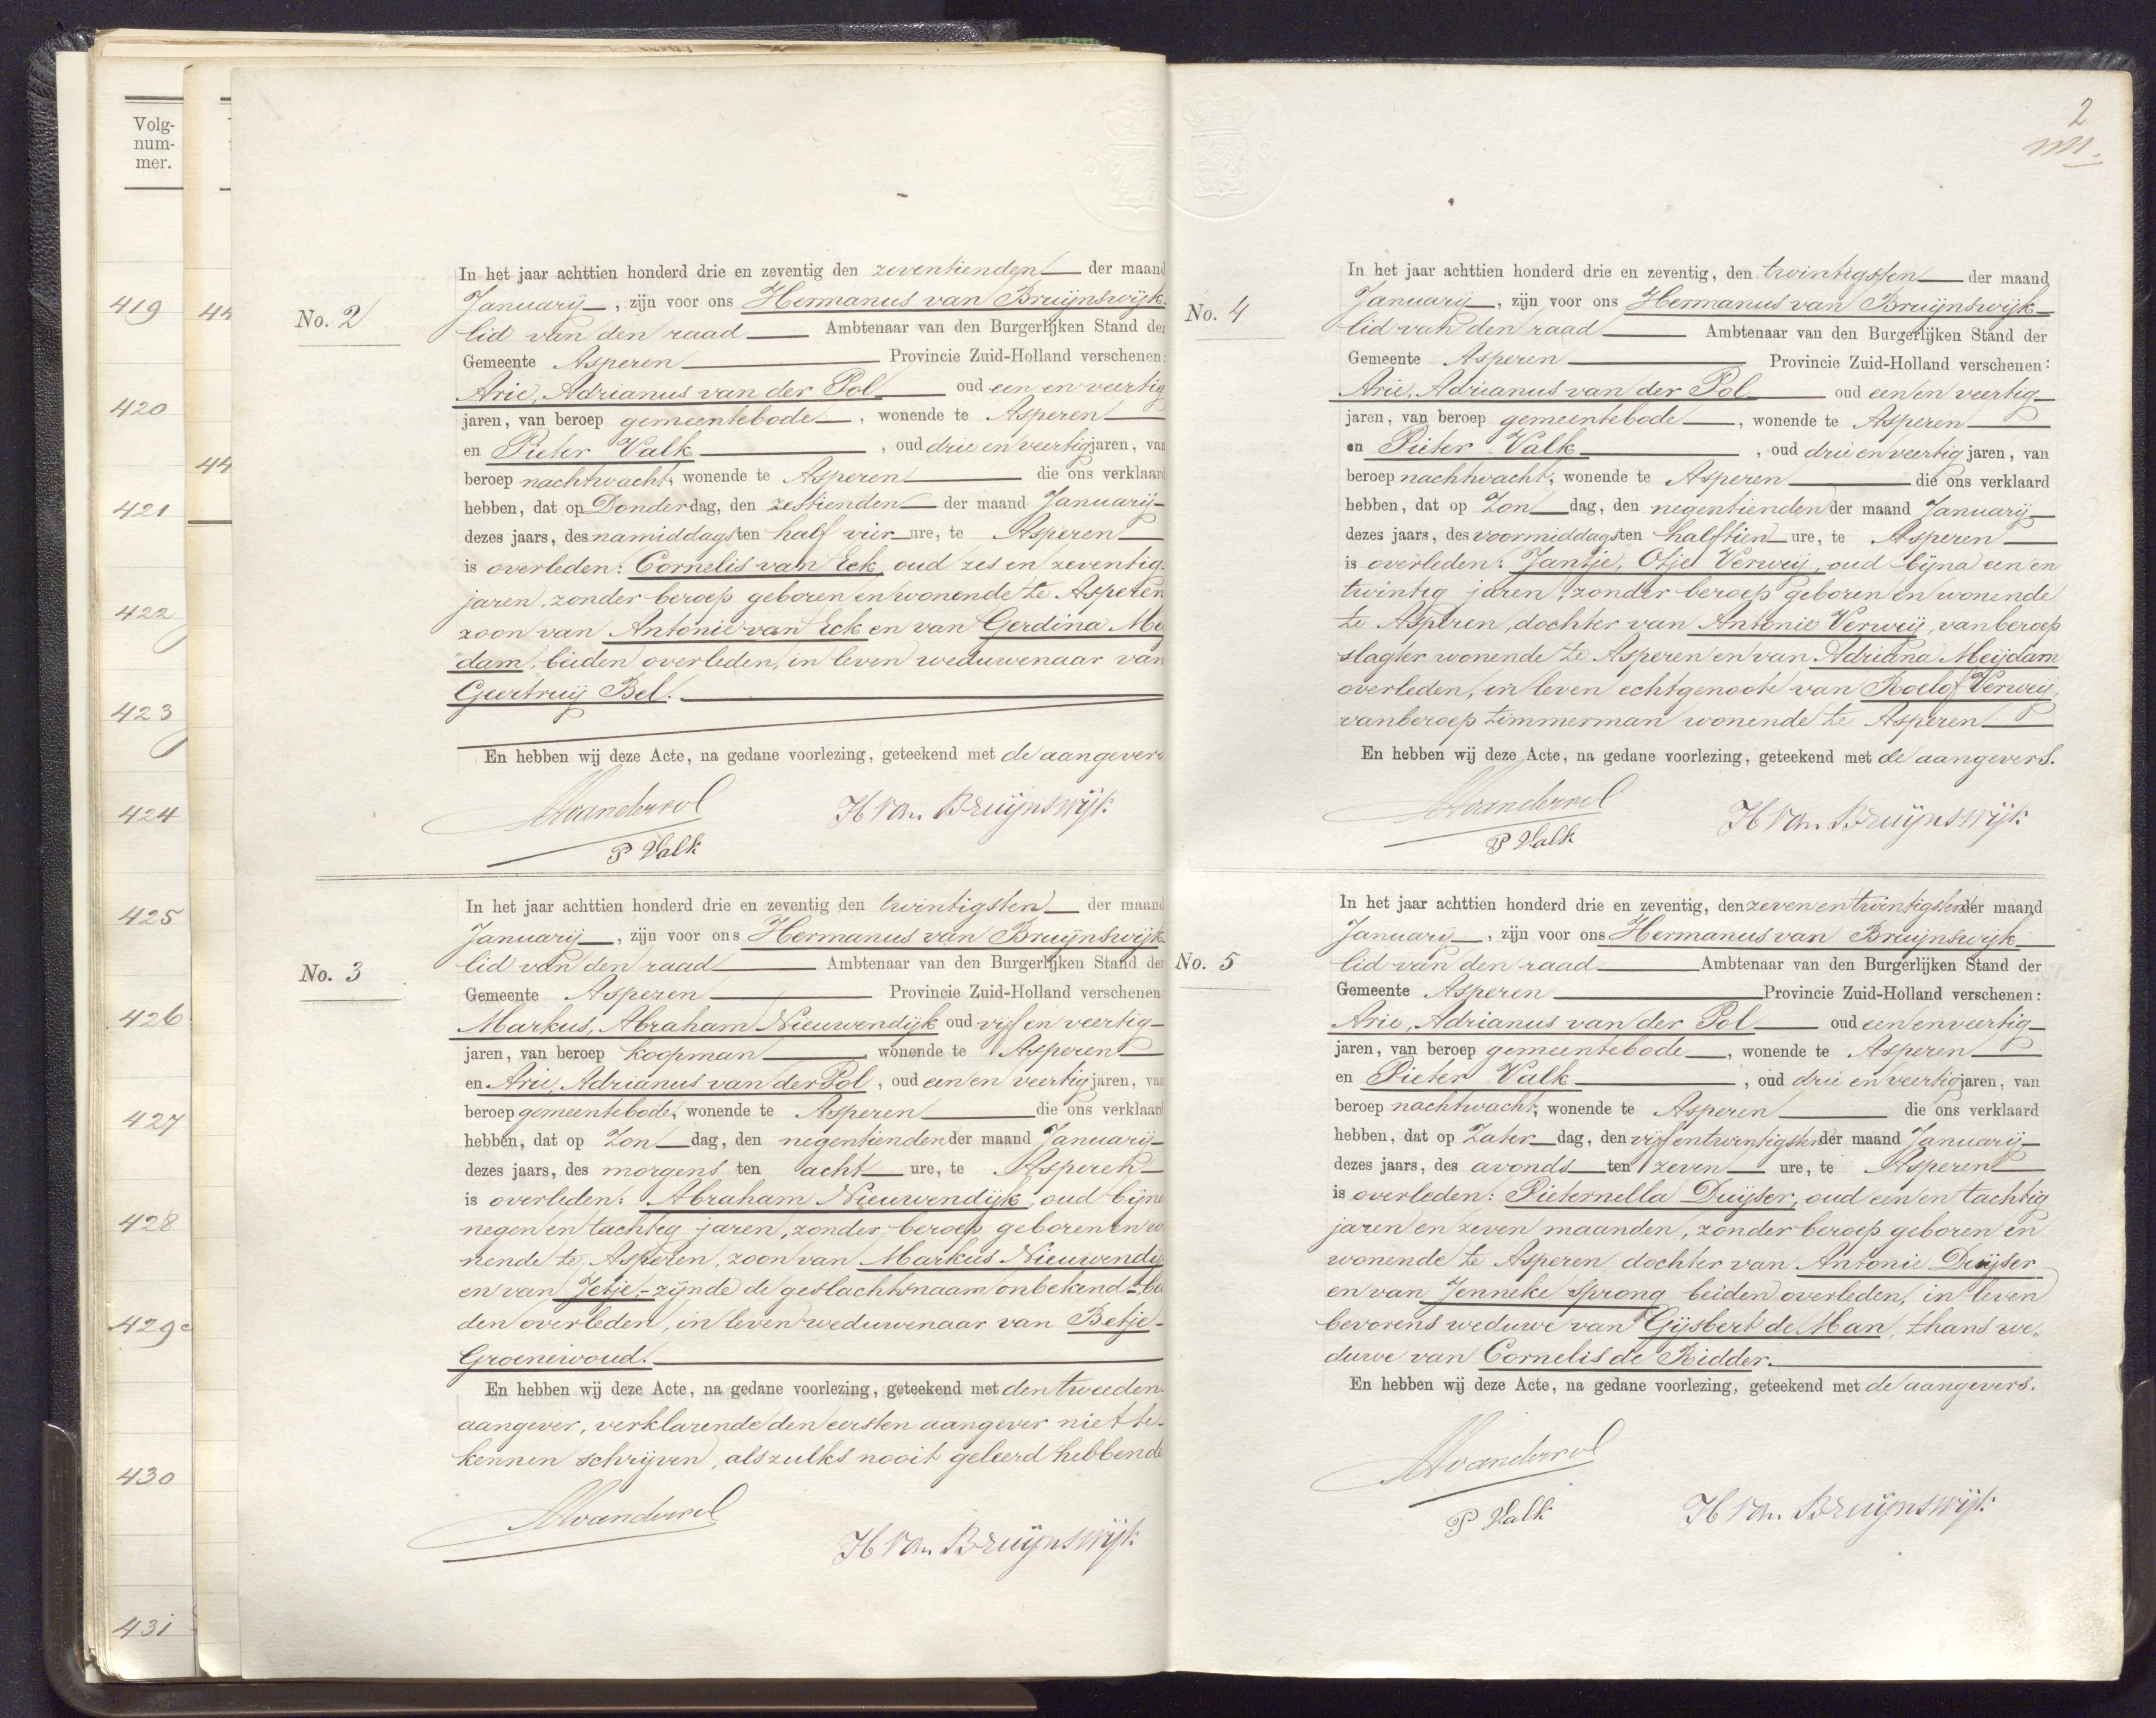 Volg-
num-
mer.
419
420
421
422
423
424
425
426
427
428
429
430
431
44
44
No. 2
In het jaar achttien honderd drie en zeventig den zeventienden der maand
Januarij, zijn voor ons Hermanus van Bruijnswijk
lid van den raad Ambtenaar van den Burgerlijken Stand der
Gemeente Asperen Provincie Zuid-Holland verschenen:
Arie, Adrianus van der Pol oud een en veertig
jaren, van beroep gemeentebode, wonende te Asperen
en Pieter Valk, oud drie en veertig jaren, van
beroep nachtwacht, wonende te Asperen die ons verklaard
hebben, dat op Donderdag, den zestienden der maand Januarij
dezes jaars, des namiddags ten half vier ure, te Asperen
is overleden: Cornelis van Eck, oud zes en zeventig
jaren, zonder beroep geboren en wonende te Asperen
zoon van Antonie van Eck en van Gerdina Me
dam, beiden overleden, in leven weduwenaar van
Geertruij Bel.
En hebben wij deze Acte, na gedane voorlezing, geteekend met de aangevers
AAvanderpol
H van Bruijnswijk
P Valk
No. 3
In het jaar achttien honderd drie en zeventig den twintigsten der maand
Januarij, zijn voor ons Hermanus van Bruijnswijk
lid van den raad Ambtenaar van den Burgerlijken Stand der
Gemeente Asperen Provincie Zuid-Holland verschenen
Markus, Abraham Nieuwendijk oud vijf en veertig
jaren, van beroep koopman wonende te Asperen
en Arie, Adrianus van der Pol, oud een en veertig jaren, van
beroep gemeentebode, wonende te Asperen die ons verklaard
hebben, dat op Zondag, den negentienden der maand Januarij
dezes jaars, des morgens ten acht ure, te Asperen
is overleden: Abraham Nieuwendijk, oud bijna
negen en tachtig jaren, zonder beroep geboren en wo
nende te Asperen, zoon van Markus Nieuwendij
en van Jetje, - zijnde de geslachtsnaam onbekend - bei
den overleden, in leven weduwenaar van Betje
Groenewoud.
En hebben wij deze Acte, na gedane voorlezing, geteekend met den tweeden
aangever, verklarende den eersten aangever niet te
kennen schrijven, als zulks nooit geleerd hebbende
AAvanderpol
H van Bruijnswijk
2
No. 4
In het jaar achttien honderd drie en zeventig, den twintigsten der maand
Januarij, zijn voor ons Hermanus van Bruijnswijk
lid van den raad Ambtenaar van den Burgerlijken Stand der
Gemeente Asperen Provincie Zuid-Holland verschenen:
Arie, Adrianus van der Pol oud een en veertig
jaren, van beroep gemeentebode, wonende te Asperen
en Pieter Valk, oud drie en veertig jaren, van
beroep nachtwacht, wonende te Asperen die ons verklaard
hebben, dat op Zondag, den negentienden der maand Januarij
dezes jaars, des voormiddags ten half tien ure, te Asperen
is overleden: Jantje, Otje Verweij, oud bijna een en
twintig jaren, zonder beroep geboren en wonende
te Asperen, dochter van Antonie Verweij, van beroep
slagter wonende te Asperen en van Adriana Meijdam
overleden, in leven echtgenoote van Roelof Verweij,
van beroep timmerman wonende te Asperen
En hebben wij deze Acte, na gedane voorlezing, geteekend met de aangevers.
AAvanderpol
H van Bruijnswijk
P Valk
No. 5
In het jaar achttien honderd drie en zeventig, den zeven en twintigsten der maand
Januarij, zijn voor ons Hermanus van Bruijnswijk
lid van den raad Ambtenaar van den Burgerlijken Stand der
Gemeente Asperen Provincie Zuid-Holland verschenen:
Arie, Adrianus van der Pol oud een en veertig
jaren, van beroep gemeentebode, wonende te Asperen
en Pieter Valk, oud drie en veertig jaren, van
beroep nachtwacht, wonende te Asperen die ons verklaard
hebben, dat op Zaterdag, den vijf en twintigsten der maand Januarij
dezes jaars, des avonds ten zeven ure, te Asperen
is overleden: Pieternella Duijser, oud een en tachtig
jaren en zeven maanden, zonder beroep geboren en
wonende te Asperen, dochter van Antonie Duijser
en van Jenneke Sprong beiden overleden, in leven
bevorens weduwe van Gijsbert de Man, thans we„
duwe van Cornelis de Ridder.
En hebben wij deze Acte, na gedane voorlezing, geteekend met de aangevers.
AAvanderpol
H van Bruijnswijk
P Valk